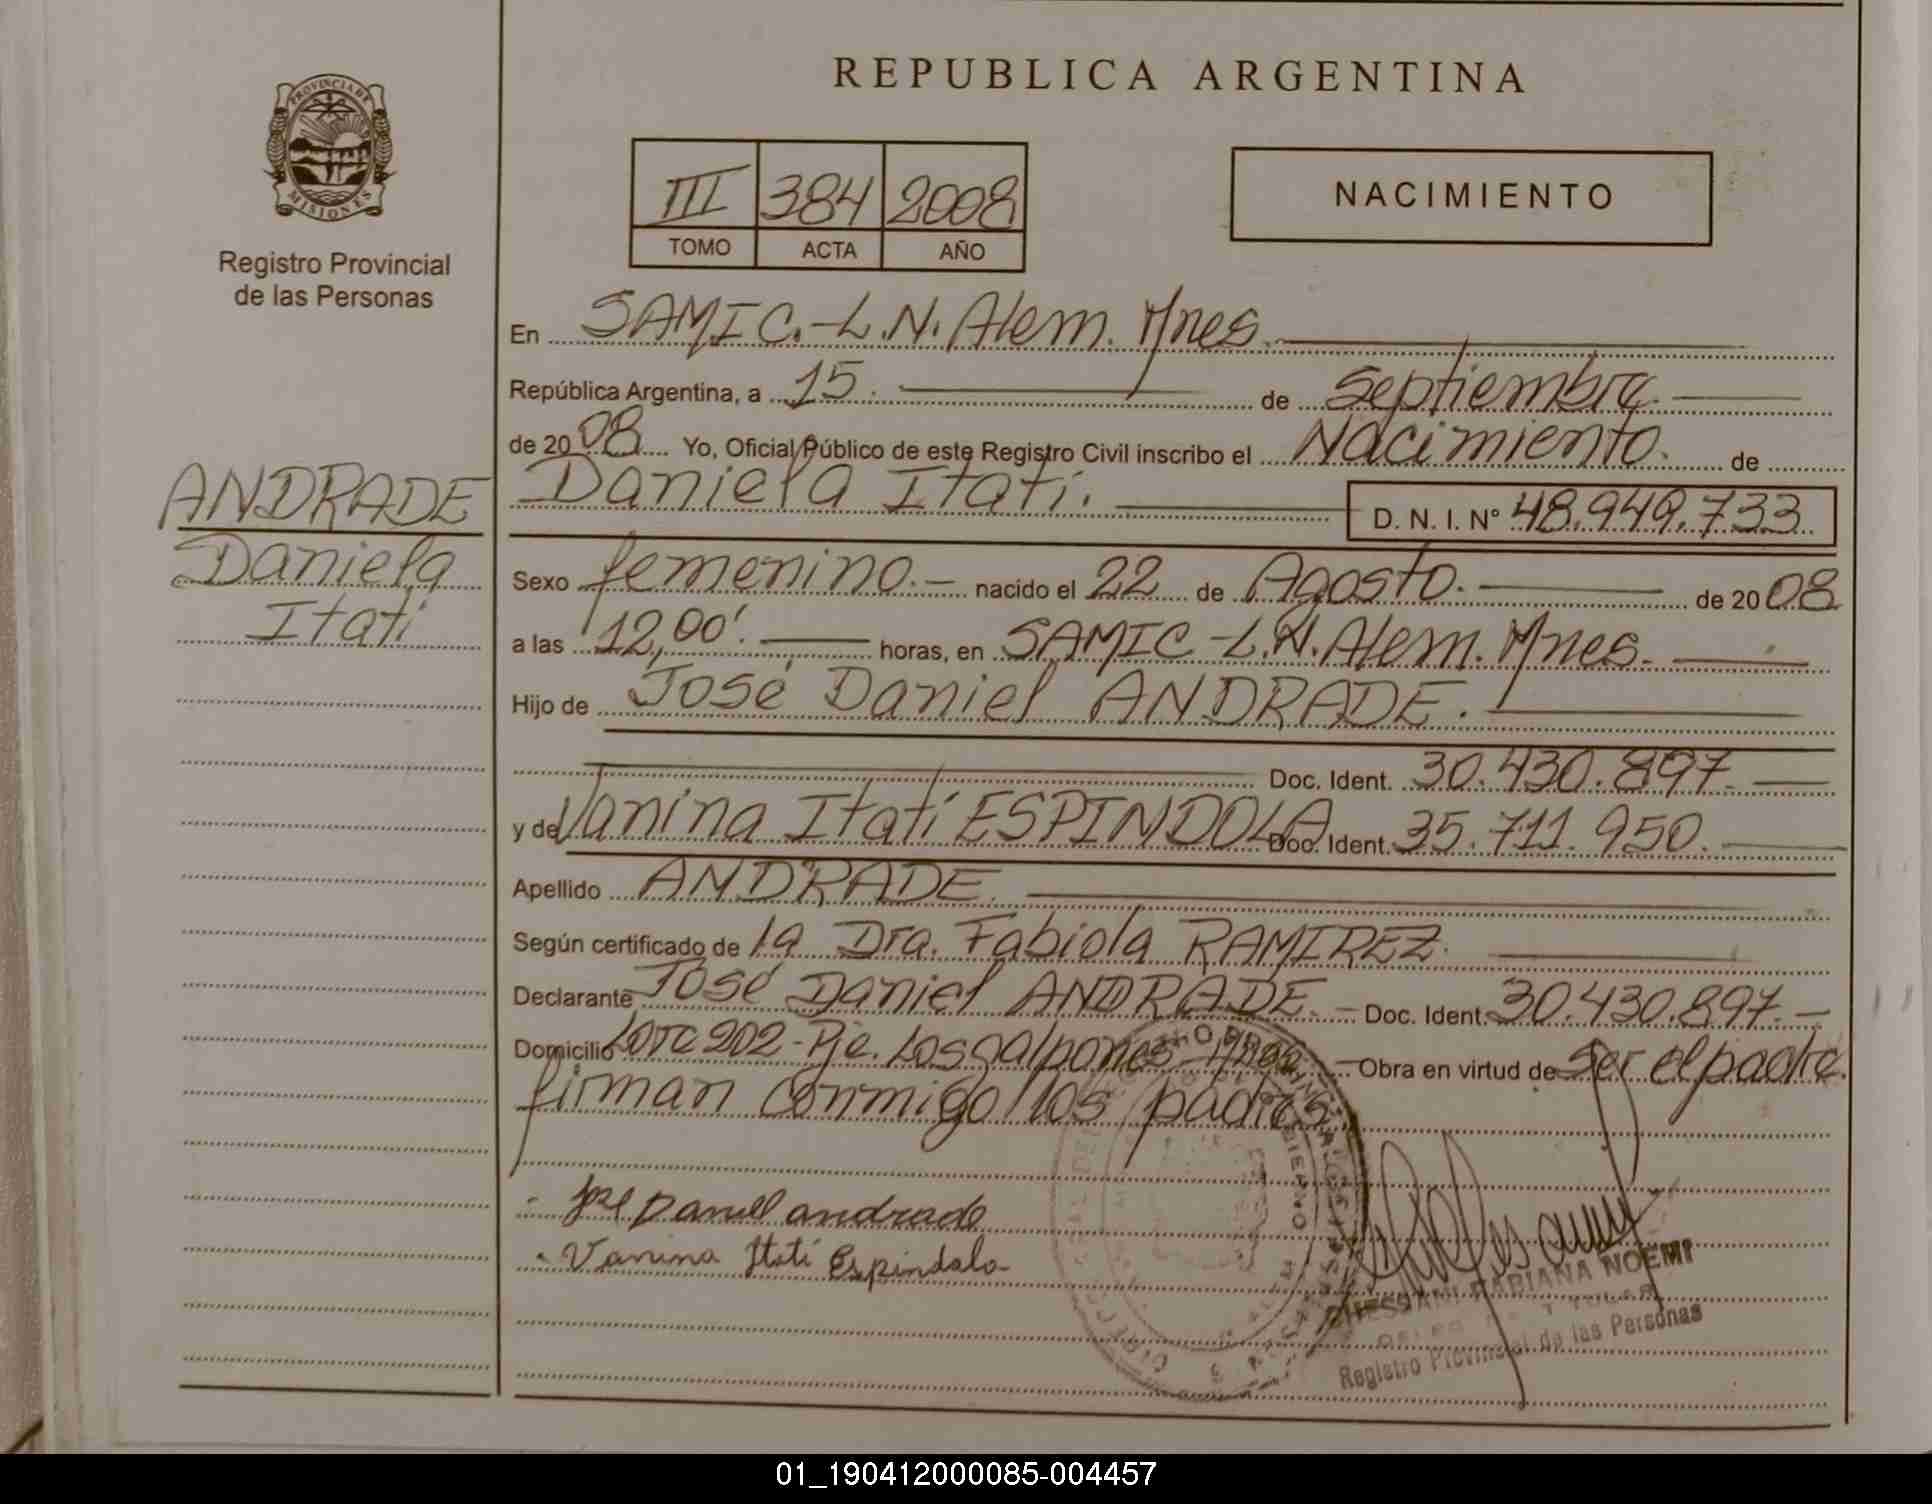 REPUBLICA ARGENTINA
PROVINCIA DE
MISIONES
Registro Provincial
de las Personas
III 384 2008
TOMO ACTA AÑO
NACIMIENTO
En SAMIC.-L.N. Alem. Mnes.
República Argentina, a 15. de Septiembre.
de 2008 Yo, Oficial Público de este Registro Civil inscribo el Nacimiento. de
ANDRADE
Daniela
Itatí
Daniela Itatí. D. N. I. Nº 48.949.733
Sexo femenino.- nacido el 22 de Agosto. de 2008
a las 12,00'. horas, en SAMIC -L.N. Alem. Mnes.
Hijo de José Daniel ANDRADE.
Doc. Ident. 30.430.897.
y de Vanina Itatí ESPINDOLA Doc. Ident. 35.711.950.
Apellido ANDRADE.
Según certificado de la Dra. Fabiola RAMIREZ.
Declarante José Daniel ANDRADE. - Doc. Ident. 30.430.897.-
Domicilio Lote 202 - Pje. Los Galpones - Mnes. Obra en virtud de Ser el padre.
firman conmigo los padres.
José Daniel andrade
Vanina Itatí Espindola
FABIANA NOEMI
Registro Provincial de las Personas
01_190412000085-004457